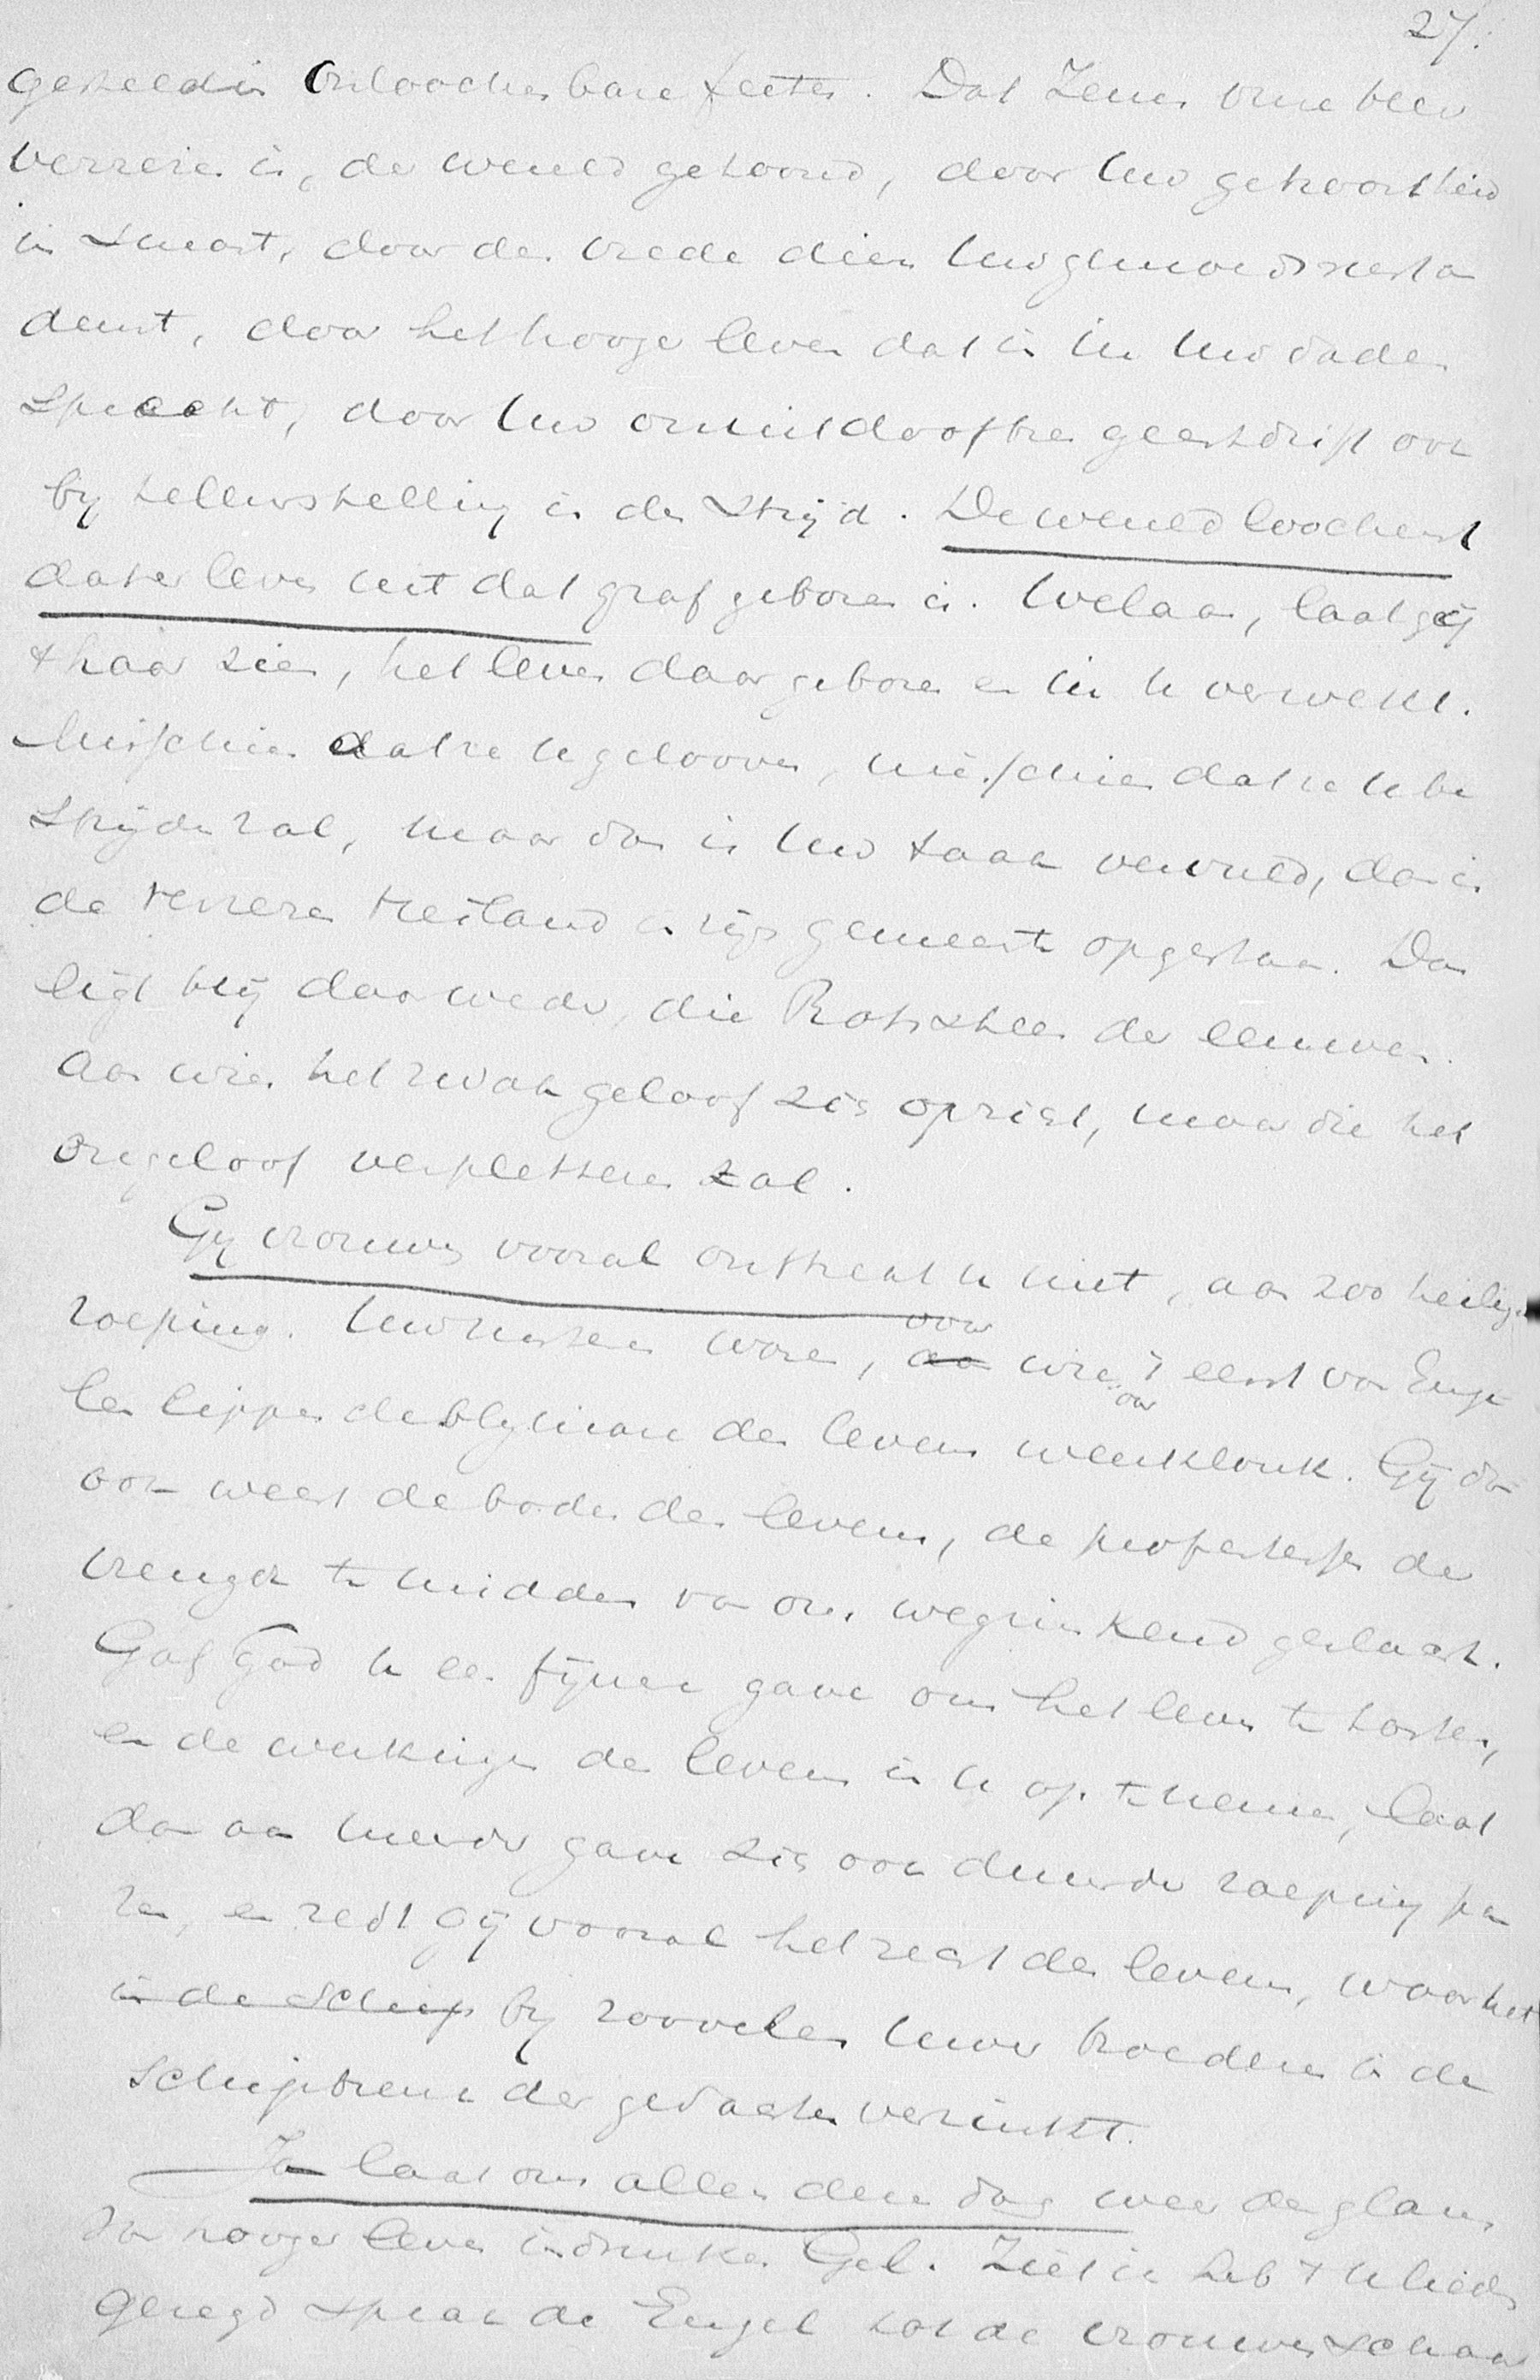 27.
gesteld in onloochenbare feiten. Dat Jezus onze Heer
verrezen is, de wereld getoond, door Uw getroostheid
in smart, door den vrede dien Uw gemoed
door het hooge leven dat in Uw daden
spreekt, door Uw onuitdoofbre geestdrift ook
by teleurstelling in den strijd. De wereld loochent
dat er leven uit dat graf geboren is. Welaan, laat gij
't haar zien, het leven daar geboren en in U verwekt.
Misschien dat ze U gelooven, misschien dat ze U be
strijden zal, maar dan is Uw taak vervuld, dan is
de verrezen Heiland in zijn gemeente opgestaan. Dan
ligt hij daar weder, die Rotssteen der eeuwen.
aan wien het zwak geloof zich opricht, maar die het
ongeloof verpletteren zal.
Gy vrouwen vooral onttrekt U niet, aan zoo heilige
roeping. Uw zusteren waren, voor wie 't eerst van Enge
len lippen de blymare des levens weerklonk. Gij dan
ook weest de boden des levens, de profetessen der
vreugde te midden van ons wegzinkend geslacht.
Gaf God U een fijner gave om het leven te tasten,
en de werkingen des levens in U op te nemen, laat
dan aan meerder gave zich ook duurder roeping pa
ren, en redt gij vooral het recht des levens, waar het
in de schip by zoovelen Uwer broederen in de
schipbreuk der gedachten verzinkt.
Ja laat ons allen dezen dag weer den glans
van hooger leven indrinken Gel. Ziet ik heb 't Ulieden
gezegd sprak de Engel tot de vrouwenschaar